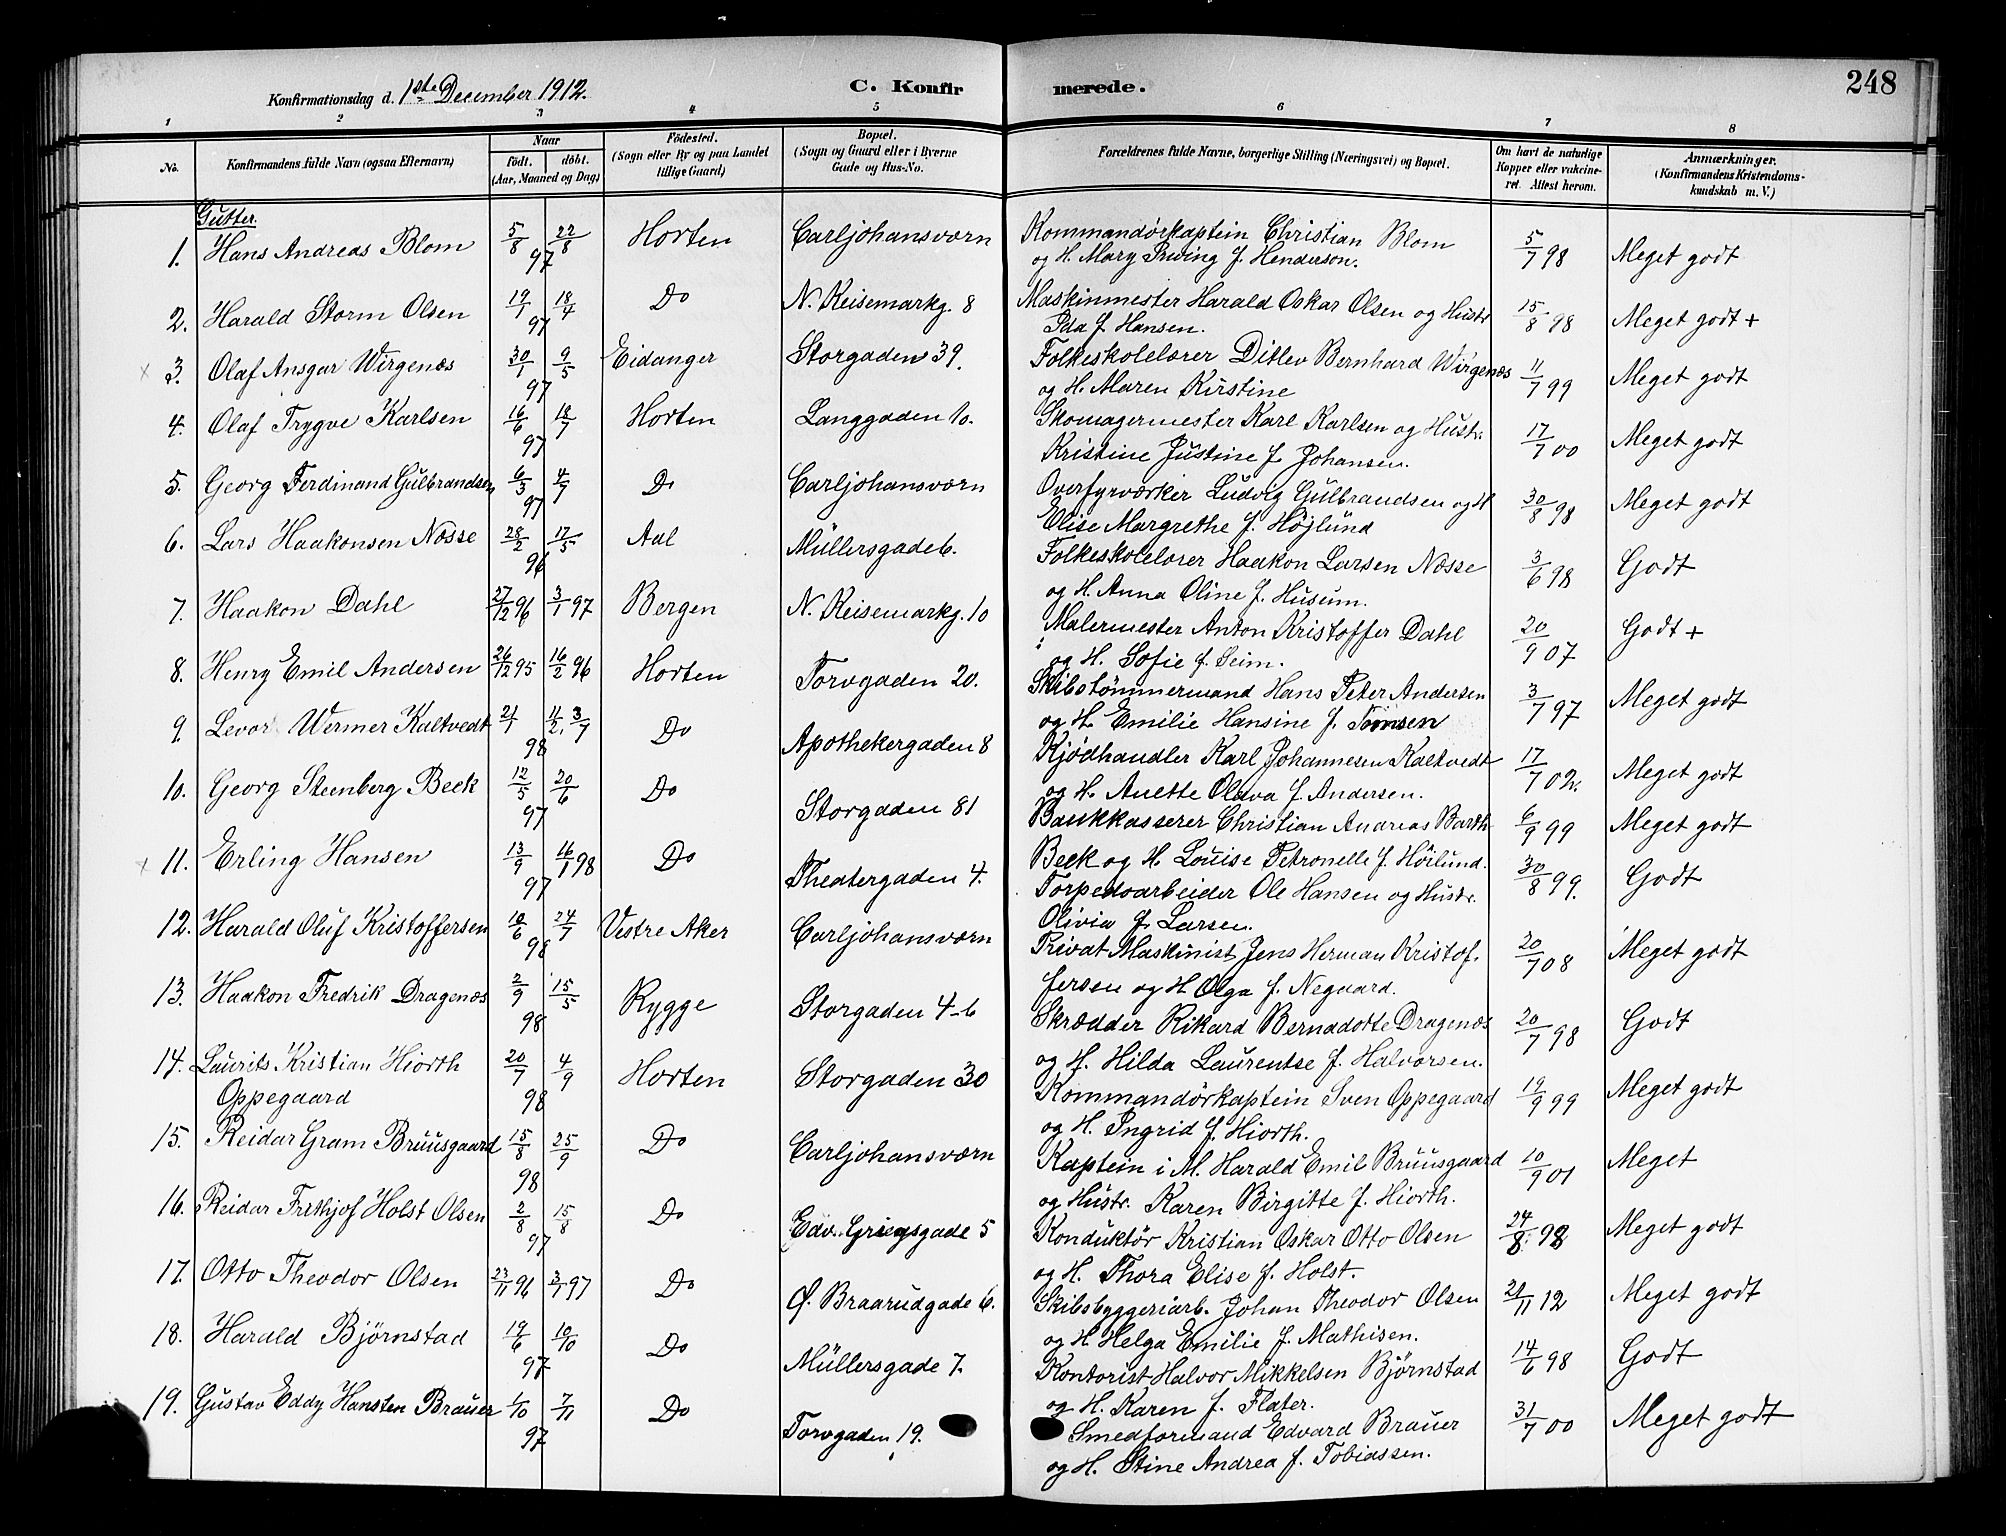 Konfirmationsdag d. 1ste December 1912.
C. Konfirmerede.
248
1 2 3 4 5 6 7 8
No.
Konfirmandens fulde Navn (ogsaa Efternavn)
Naar
födt. döbt.
(Aar, Maaned og Dag)
Födested.
(Sogn eller By og paa Landet
tillige Gaard)
Bopæl.
(Sogn og Gaard eller i Byerne
Gade og Hus-No.
Forældrenes fulde Navne, borgerlige Stilling (Næringsvei) og Bopæl.
Om havt de naturlige
Kopper eller vakcine-
ret. Attest herom.
Anmærkninger.
(Konfirmandens Kristendoms-
kundskab m. V.)
Gutter.
1. Hans Andreas Blom 5/8 22/8 97 Horten Carljohansværn Kommandörkaptein Christian Blom 5/7 98 Meget godt
og H. Mary f. Henderson.
2. Harald Storm Olsen 19/1 18/4 97 Do N. Keisemarkg. 8 Maskinmester Harald Oskar Olsen og Hustr 15/8 98 Meget godt +
Ida f. Hansen.
x 3. Olaf Ansgar Wirgenæs 30/1 9/5 97 Eidanger Storgaden 39. Folkeskolelærer Ditlev Bernhard Wirgenæs 11/7 99 Meget godt
og H. Maren Kirstine
4. Olaf Trygve Karlsen 16/6 18/7 97 Horten Langgaden 10. Skomagermester Karl Karlsen og Hustr. 17/7 00 Meget godt
Kristine Justine f. Johansen.
5. Georg Ferdinand Gulbrandsen 6/3 4/7 97 Do Carljohansværn Overfyrværker Ludvig Gulbrandsen og H 30/8 98 Meget godt
Elise Margrethe f. Højlund
6. Lars Haakonsen Næsse 28/2 17/5 96 Aal Müllersgade 6. Folkeskolelærer Haakon Larsen Næsse 3/6 98 Godt
og H. Anna Oline f. Husum.
7. Haakon Dahl 27/12 96 3/1 97 Bergen N. Keisemarkg. 10 Malermester Anton Kristoffer Dahl 20/9 07 Godt +
og H. Sofie f. Seim.
8. Henry Emil Andersen 26/12 95 16/2 96 Horten Torvgaden 20. Skibstömmermand Hans Peter Andersen 3/7 97 Meget godt
og H. Emilie Hansine f. Tomsen
9. Levor Wermer Kaltvedt 21/1 11/2. 3/7 98 Do Apothekergaden 8 Kjödhandler Karl Johannesen Kaltvedt 17/7 02. Meget godt
og H. Anette Olava f. Andersen.
10. Georg Steenberg Beck 12/5 20/6 97 Do Storgaden 81 Bankkasserer Christian Andreas Barth 6/9 99 Meget godt
Beck og H. Louise Petronelle f. Höilund.
x 11. Erling Hansen 13/9 97 16/1 98 Do Theatergaden 4. Torpedoarbeider Ole Hansen og Hustr. 30/8 99. Godt
Olivia f. Larsen.
12. Harald Oluf Kristoffersen 10/6 24/7 98 Vestre Aker Carljohansværn Privat Maskinist Jens Herman Kristof- 20/7 08 Meget godt
fersen og H Olga f. Negaard.
13. Haakon Fredrik Dragenæs 2/9 15/5 98 Rygge Storgaden 46 Skrædder Rikard Bernadotte Dragenæs 20/7 98 Godt
og H. Hilda Laurentse f. Halvorsen.
14. Laurits Kristian Hiorth 20/7 4/9 98 Horten Storgaden 30 Kommandörkaptein Sven Oppegaard 19/9 99 Meget godt
Oppegaard
og H. Ingrid f. Hiorth.
15. Reidar Gram Bruusgaard 15/8 25/9 98 Do Carljohansværn Kaptein i M. Harald Emil Bruusgaard 10/9 01 Meget
og Hustr. Karen Birgitte f. Hiorth.
16. Reidar Frithjof Holst Olsen 2/8 15/8 97 Do Edv. Griegsgade 5 Konduktör Kristian Oskar Otto Olsen 24/8. 98 Meget godt
og H. Thora Elise f. Holst.
17. Otto Theodor Olsen 23/11 96 3/1 97 Do Ø. Braarudgade 6. Skibsbyggeriarb. Johan Theodor Olsen 21/11 12 Meget godt
og H Helga Emilie f. Mathisen.
18. Harald Björnstad 19/6 10/10 97 Do Müllersgade 7. Kontorist Halvor Mikkelsen Björnstad 14/6 98 Godt
og H. Karen f. Flater.
19. Gustav Eddy Hansten Brauer 1/10 7/11 97 Do Torvgaden 19. Smedformand Edvard Brauer 31/7 00 Meget godt
og H. Stine Andrea f. Tobiassen.